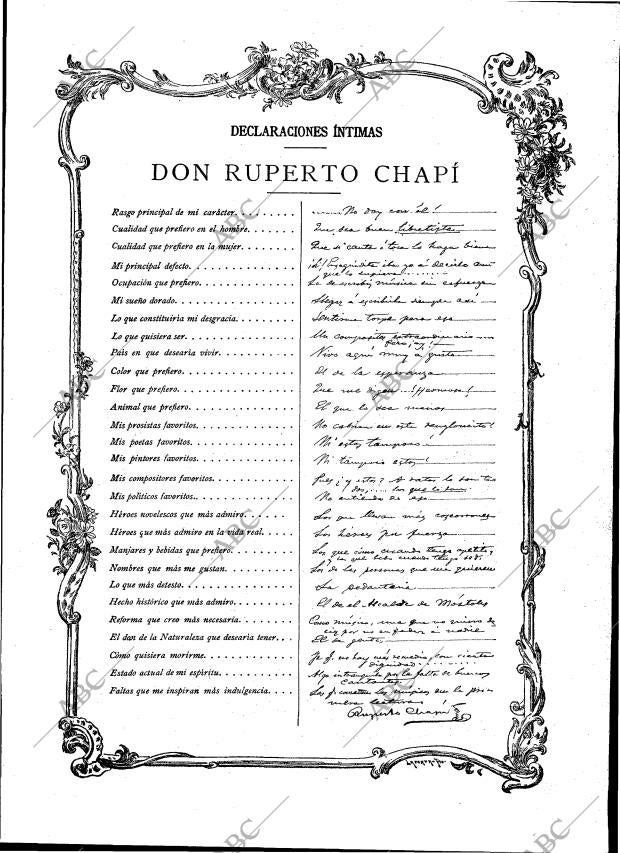 DECLARACIONES ÍNTIMAS
DON RUPERTO CHAPÍ
Rasgo principal de mi carácter. . . . . . . . . ........No doy con él!
Cualidad que prefiero en el hombre. . . . . . . Que sea buen libretista
Cualidad que prefiero en la mujer. . . . . . . . Que si canta ó toca lo haga bien
Mi principal defecto. . . . . . . . . . . . . . . iba yo á decirlo aun
que lo supiera . . . . . . .
Ocupación que prefiero. . . . . . . . . . . . . La de escribir música
Mi sueño dorado. . . . . . . . . . . . . . . . Llegar á escribirla siempre así
Lo que constituiría mi desgracia. . . . . . . . . Sentirme torpe para eso
Lo que quisiera ser. . . . . . . . . . . . . . . Un compositor extraordinario
País en que desearía vivir. . . . . . . . . . . . Vivo aquí muy á gusto
Color que prefiero. . . . . . . . . . . . . . . El de la esperanza
Flor que prefiero. . . . . . . . . . . . . . . . Que me digan ...
Animal que prefiero. . . . . . . . . . . . . . El que lo sea menos
Mis prosistas favoritos. . . . . . . . . . . . . No caben en este rengloncito!
Mis poetas favoritos. . . . . . . . . . . . . . Ni estos tampoco!
Mis pintores favoritos. . . . . . . . . . . . . Ni tampoco estos!
Mis compositores favoritos. . . . . . . . . . . Pues ¿y estos? A ratos lo son
Mis políticos favoritos.. . . . . . . . . . . . No entiendo de eso
Héroes novelescos que más admiro. . . . . . . Los que llevan más coscorrones
Héroes que más admiro en la vida real. . . . . Los héroes por fuerza
Manjares y bebidas que prefiero. . . . . . . . Los que como cuando tengo apetito,
y los que bebo cuando tengo sed.
Nombres que más me gustan. . . . . . . . . . Los de las personas que me quieren
Lo que más detesto. . . . . . . . . . . . . . La pedantería
Hecho histórico que más admiro. . . . . . . . El del Alcalde de Móstoles
Reforma que creo más necesaria. . . . . . . . Como músico, una que no quiero de-
cir por no enfadar á nadie
El don de la Naturaleza que desearía tener. . . El de gentes
Cómo quisiera morirme. . . . . . . . . . . . Si no hay más remedio, con cierta
dignidad
Estado actual de mi espíritu. . . . . . . . . . Algo intranquilo por la falta de buenos
cantantes
Faltas que me inspiran más indulgencia. . . . . Los q. cometen los en la pri-
mera lectura
Ruperto Chapí
ABC